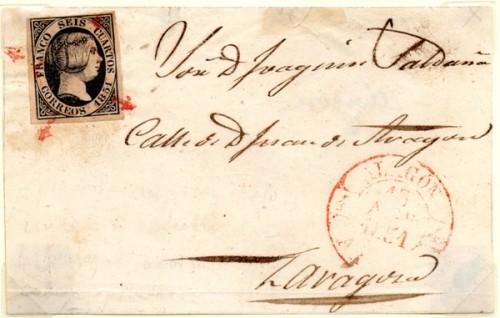 FRANCO SEIS CUARTOS
CORREOS 1851
Sor. D. Joaquin Saldaña
Calle de D. Juan de Aragon
ALAGON
17
1851
Zaragoza